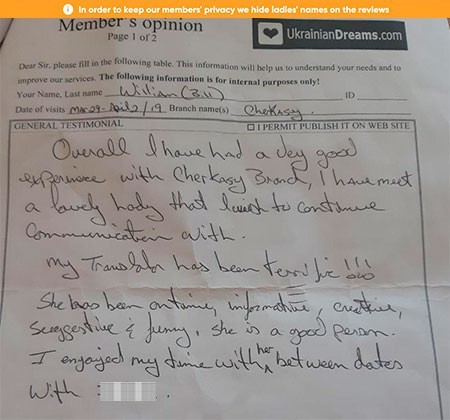 In order to keep our members' privacy we hide ladies' names on the reviews
Member's opinion
Page 1 of 2
UkrainianDreams.com
Dear Sir, please fill in the following table. This information will help us to understand your needs and to
improve our services. The following information is for internal purposes only!
Your Name, Last name William (Bill) ID
Date of visits Mar 29 - April 2/19 Branch name(s) Cherkasy.
GENERAL TESTIMONIAL I PERMIT PUBLISH IT ON WEB SITE
Overall I have had a very good
experience with Cherkasy Branch, I have meet
a lovely lady that I wish to continue
communication with.
My Translator has been terrific!!!
She has been ontime, informative, creative,
suggestive & funny. She is a good person.
I enjoyed my time with her between dates
with .